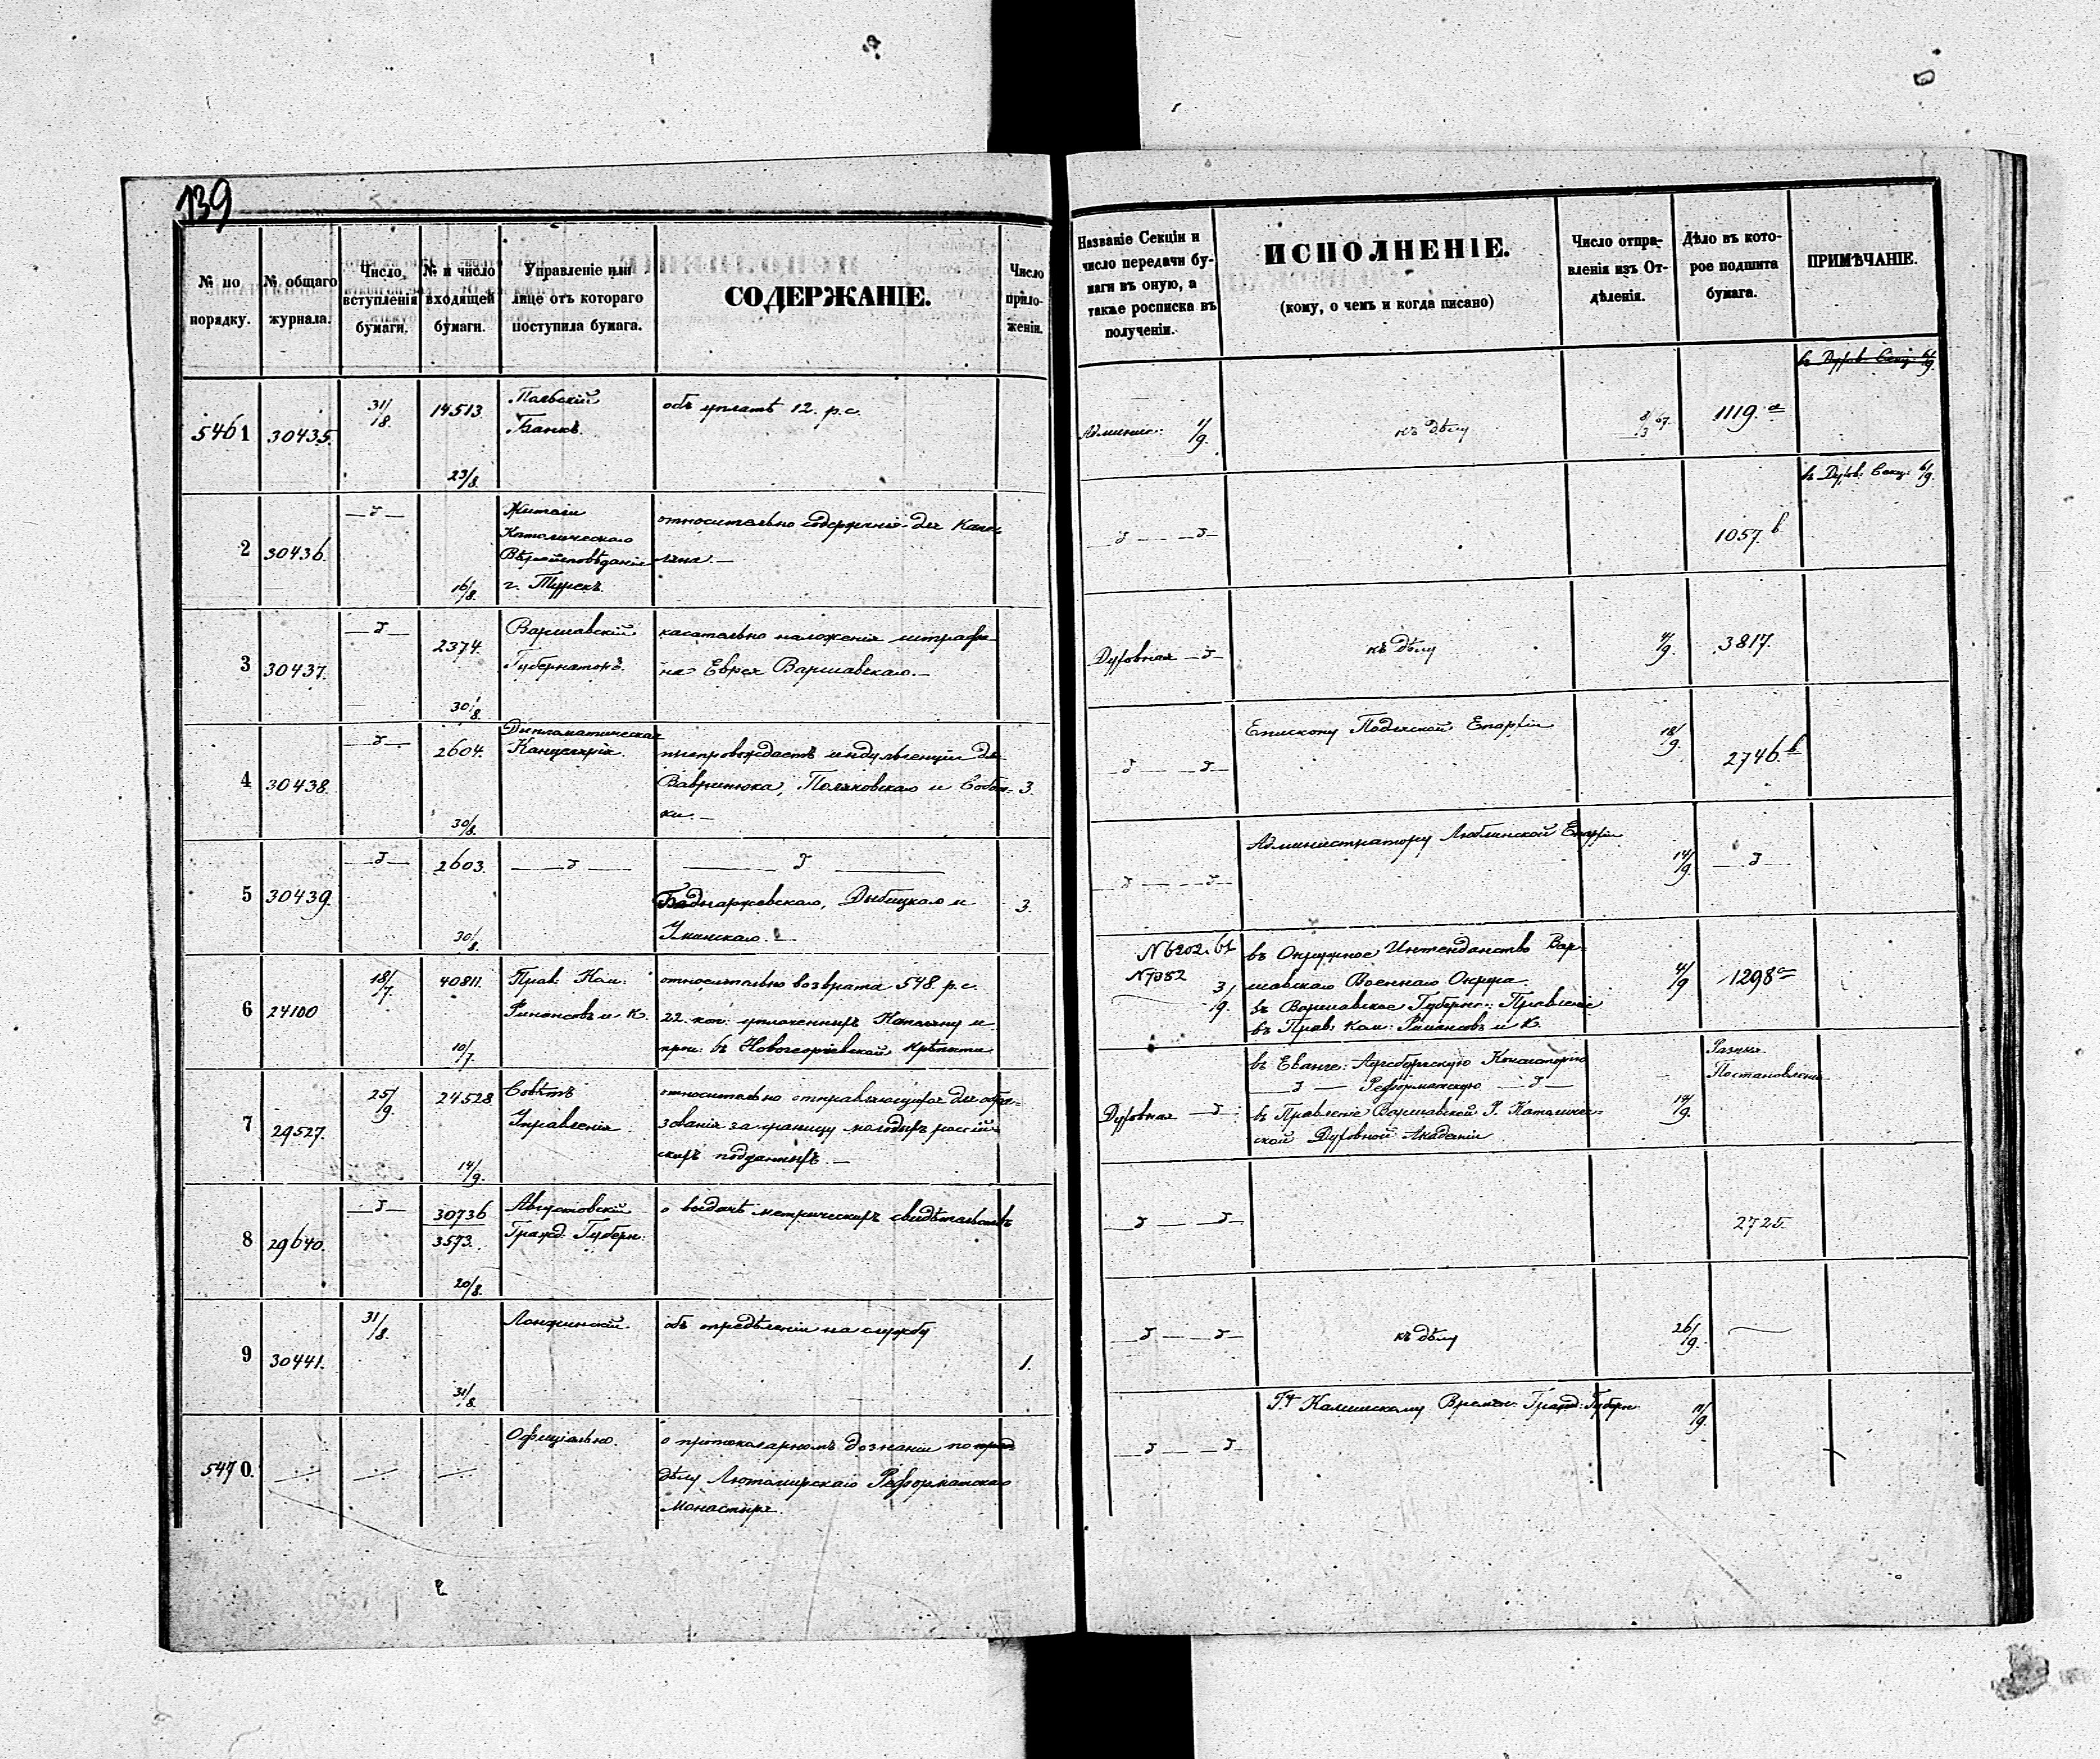 139
№ по порядку.
№ общаго журнала.
Число вступленія бумаги.
№ и число входящей бумаги.
Управленіе или лице отъ котораго поступила бумага.
СОДЕРЖАНІЕ.
Число приложеніи.
Названіе Секціи и число передачи бумаги въ оную, а также росписка въ полученіи.
ИСПОЛНЕНІЕ.
(кому, о чемъ и когда писано)
Число отправленія изъ Отдѣленія.
Дѣло въ которое подшита бумага.
ПРИМѢЧАНІЕ.
въ Духов. Секц. 6/9.
5461 30435. 31/8. 14513. 23/8.
Польскій
Банкъ.
объ уплатѣ 12. р. с.
Админис: 1/9.
къ дѣлу
8/3 67.
1119. а
въ Духов. Секц. 6/9.
2 30436. —д— 16/8.
Жители
Католическаго
Вѣроисповѣданія
г. Турекъ.
относительно содержанія для Капел-
лана.—
—д— —д—
1057. в
3 30437. —д— 2374. 30/8.
Варшавскій
Губернаторъ.
касательно наложенія штрафа
на Еврея Варшавскаго.—
Духовная —д—
къ дѣлу
4/9.
3817.
4 30438. —д— 2604. 30/8.
Дипломатическая
Канцелярія.
препровождаетъ индульгенціи для
Вавринюка, Поляковскаго и
ки.—
3.
—д— —д—
Епископу Подляской Епархіи
18/9.
2746. в
5 30439. —д— 2603. 30/8.
—д—
—д—
Дыбицкаго и
3.
—д— —д—
Администратору Люблинской Епархіи
14/9
—д—
6 24100 18/7. 40811. 10/7.
Прав: Ком:
Финансовъ и К.
относительно возврата 548. р. с.
22. коп: уплаченныхъ Капелану и
проч: въ Новогеоргіевской Крѣпости
N 6202.
N 7352
3/9.
въ Окружное Интенданство Вар-
шавскаго Военнаго Округа.
въ Варшавское Губернс: Правленіе
въ Прав: Ком: Финансовъ и К.
4/9
1298 а
7 29527. 25/9. 24528 14/9.
Совѣтъ
Управленія
относительно отправляющихся для обра-
зованія за границу молодыхъ россій-
скихъ подданныхъ.—
Духовная —д—
въ Еванге: Аугсбургскую Консисторію
—д— Реформатскую —д—
въ Правленіе Варшавской Р. Католичес-
кой Духовной Академіи
14/9.
Разныя
Постановленія
8 29640. —д— 30736 3573. 20/8.
Августовскій
Гражд: Губерн:
о выдачѣ метрическихъ свидѣтельствъ
—д— —д—
2725.
9 30441. 31/8. 31/8.
объ опредѣленіи на службу
1.
—д— —д—
къ дѣлу
26/9.
5470.
Офиціально.
о протоколарномъ дознаніи по
дѣлу Лютомирскаго Реформатскаго
Монастыря.
—д— —д—
Калишскому Времен: Гражд: Губерн
11/9.